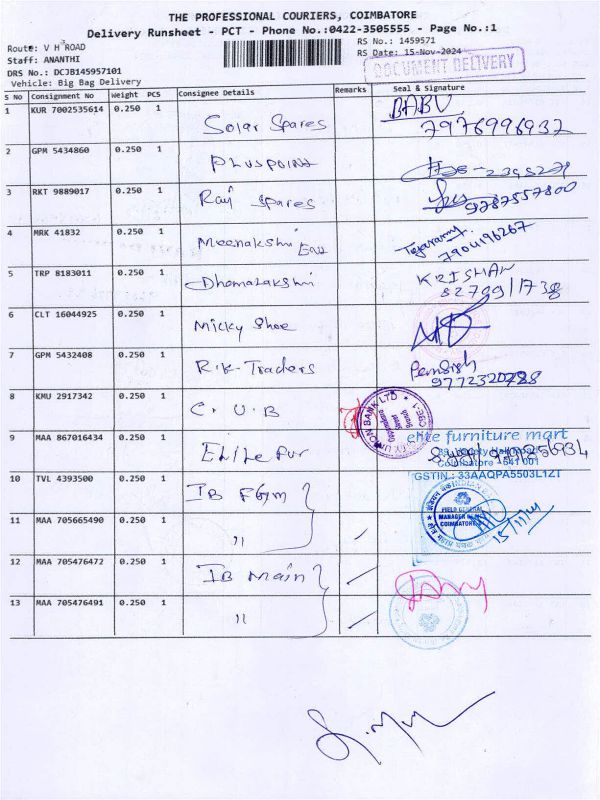 THE PROFESSIONAL COURIERS, COIMBATORE
Delivery Runsheet - PCT - Phone No.:0422-3505555 - Page No.:1
Route: V H ROAD
RS No.: 1459571
Staff: ANANTHI
RS Date: 15-Nov-2024
DRS No.: DCJB145957101
DOCUMENT DELIVERY
Vehicle: Big Bag Delivery
S No Consignment No Weight PCS Consignee Details Remarks Seal & Signature
1 KUR 7002535614 0.250 1 Solar Spares BABU
7976996932
2 GPM 5434860 0.250 1 PLUSPOINT
3 RKT 9889017 0.250 1 Raj Spares 9787557800
4 MRK 41832 0.250 1 Meenakshi Ent 7904196267
5 TRP 8183011 0.250 1 Dhanalakshmi KRISHAN
8279911738
6 CLT 16044925 0.250 1 Micky Shoe
7 GPM 5432408 0.250 1 R.K. Traders
8 KMU 2917342 0.250 1 C.U.B UNION BANK LTD
9 MAA 867016434 0.250 1 Elite Fur elite furniture mart
Coimbatore - 641 001
10 TVL 4393500 0.250 1 IB FGM GSTIN : 33AAQPA5503L1ZT
FIELD GENERAL
MANAGER
COIMBATORE
11 MAA 705665490 0.250 1 " 15/11/24
12 MAA 705476472 0.250 1 IB Main
13 MAA 705476491 0.250 1 "